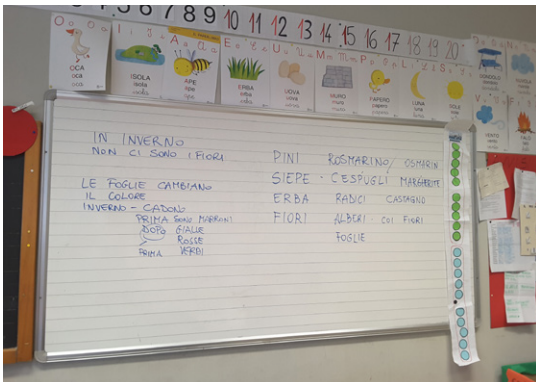 5 6 7 8 9 10 11 12 13 14 15 16 17 18 19 20
O o
I i
A a
E e
U u
M m
P p
L l
S s
N n
V v
F f
OCA
oca
oca
ISOLA
isola
isola
APE
ape
ape
ERBA
erba
erba
UOVA
uova
uova
MURO
muro
muro
PAPERO
papero
papero
LUNA
luna
luna
SOLE
sole
sole
VENTO
vento
IN INVERNO
NON CI SONO I FIORI
LE FOGLIE CAMBIANO
IL COLORE
INVERNO - CADONO
PRIMA SONO MARRONI
DOPO GIALLE
ROSSE
PRIMA VERDI
PINI ROSMARINO / OSMARIN
SIEPE · CESPUGLI MARGHERITE
ERBA RADICI CASTAGNO
FIORI ALBERI · COI FIORI
FOGLIE